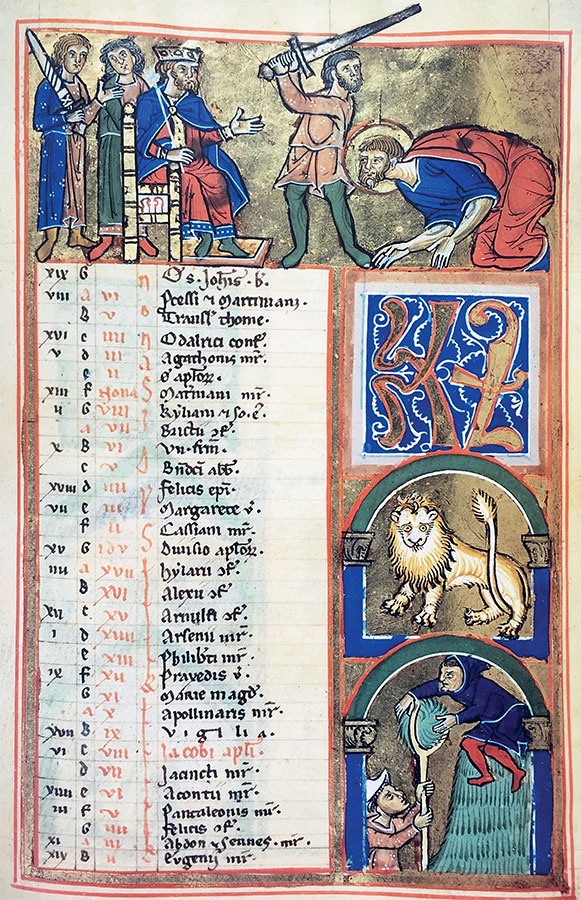 KL
xix G O s. Joh'is. b.
viii a vi
B v Transl' thome.
xvi c iiii Odalrici conf.
v d iii Agathonis mr.
e ii O aplor.
xiii f Nona mr.
ii G viii Kyliani & so. e.
a vii Brictii cf.
x B vi Vii. frm.
c v Bndci abb.
xviii d iiii Felicis epi.
vii e iii Margarete v.
f ii Cassiani mr.
xv G idv Diuisio aplor.
iiii a xvii Hylarii cf.
B xvi Alexii cf.
xii c xv Arnulfi cf.
i d xiiii Arsenii mr.
e xiii Philib'ti mr.
ix f xii Praxedis v.
G xi Marie magd.
a x Apollinaris mr.
xvii B ix vigilia.
vi c viii Iacobi apli.
d vii Jacincti mr.
xiiii e vi Acontii mr.
iii f v Pantaleonis mr.
G iiii Felicis cf.
xi a iii Abdon & Sennes. mr.
xix B ii Eugenii mr.